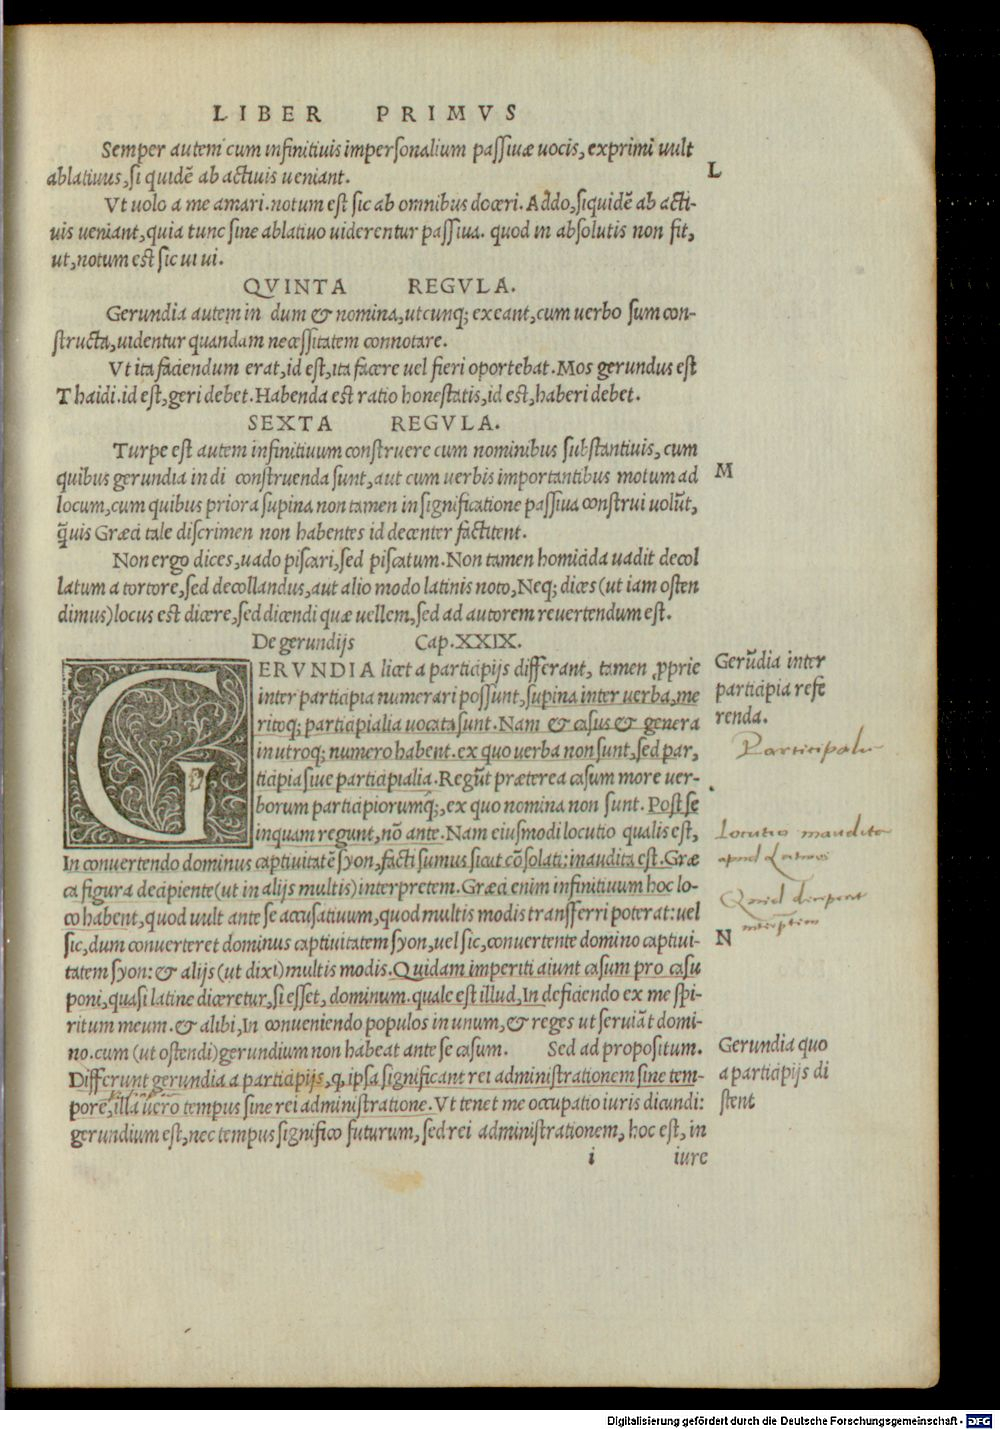 LIBER PRIMVS
Semper autem cum infinitiuis impersonalium passiuæ uocis, exprimi uult
ablatiuus, si quidē ab actiuis ueniant.
L
Vt uolo a me amari. notum est sic ab omnibus doceri. Addo, siquidē ab acti-
uis ueniant, quia tunc sine ablatiuo uiderentur passiua. quod in absolutis non fit,
ut, notum est sic ui ui.
QVINTA REGVLA.
Gerundia autem in dum & nomina, utcunq; exeant, cum uerbo sum con-
structa, uidentur quandam necessitatem connotare.
Vt ita faciendum erat, id est, ita facere uel fieri oportebat. Mos gerundus est
Thaidi. id est, geri debet. Habenda est ratio honestatis, id est, haberi debet.
SEXTA REGVLA.
Turpe est autem infinitiuum construere cum nominibus substantiuis, cum
quibus gerundia in di construenda sunt, aut cum uerbis importantibus motum ad
M
locum, cum quibus priora supina non tamen in significatione passiua construi uolūt,
q̄uis Græci tale discrimen non habentes id decenter factitent.
Non ergo dices, uado piscari, sed piscatum. Non tamen homicida uadit decol
latum a tortore, sed decollandus, aut alio modo latinis noto, Neq; dices (ut iam osten
dimus) locus est dicere, sed dicendi quæ uellem, sed ad autorem reuertendum est.
De gerundijs Cap. XXIX.
GERVNDIA licet a participijs differant, tamen ꝓprie
inter participia numerari possunt, supina inter uerba, me
ritoq; participialia uocata sunt. Nam & casus & genera
in utroq; numero habent. ex quo uerba non sunt, sed par,
ticipia siue participialia. Regūt præterea casum more uer-
borum participiorumq;, ex quo nomina non sunt. Post se
inquam regunt, nō ante. Nam eiusmodi locutio qualis est,
In conuertendo dominus captiuitatē syon, facti sumus sicut cōsolati: inaudita est. Græ
ca figura decipiente (ut in alijs multis) interpretem. Græci enim infinitiuum hoc lo-
co habent, quod uult ante se accusatiuum, quod multis modis transferri poterat: uel
sic, dum conuerteret dominus captiuitatem syon, uel sic, conuertente domino captiui-
tatem syon: & alijs (ut dixi) multis modis. Quidam imperiti aiunt casum pro casu
poni, quasi latine diceretur, si esset, dominum. quale est illud, In deficiendo ex me spi-
ritum meum. & alibi, In conueniendo populos in unum, & reges ut seruiāt domi-
no. cum (ut ostendi) gerundium non habeat ante se casum. Sed ad propositum.
Differunt gerundia a participijs, q, ipsa significant rei administrationem sine tem-
pore, illa uero tempus sine rei administratione. Vt tenet me occupatio iuris dicundi:
gerundium est, nec tempus significo futurum, sed rei administrationem, hoc est, in
i iure
Gerūdia inter
participia refe
renda.
Participalia
Locutio inaudita
apud Latinos
Quid decipiat
N
Gerundia quo
a participijs di
stent
Digitalisierung gefördert durch die Deutsche Forschungsgemeinschaft - DFG